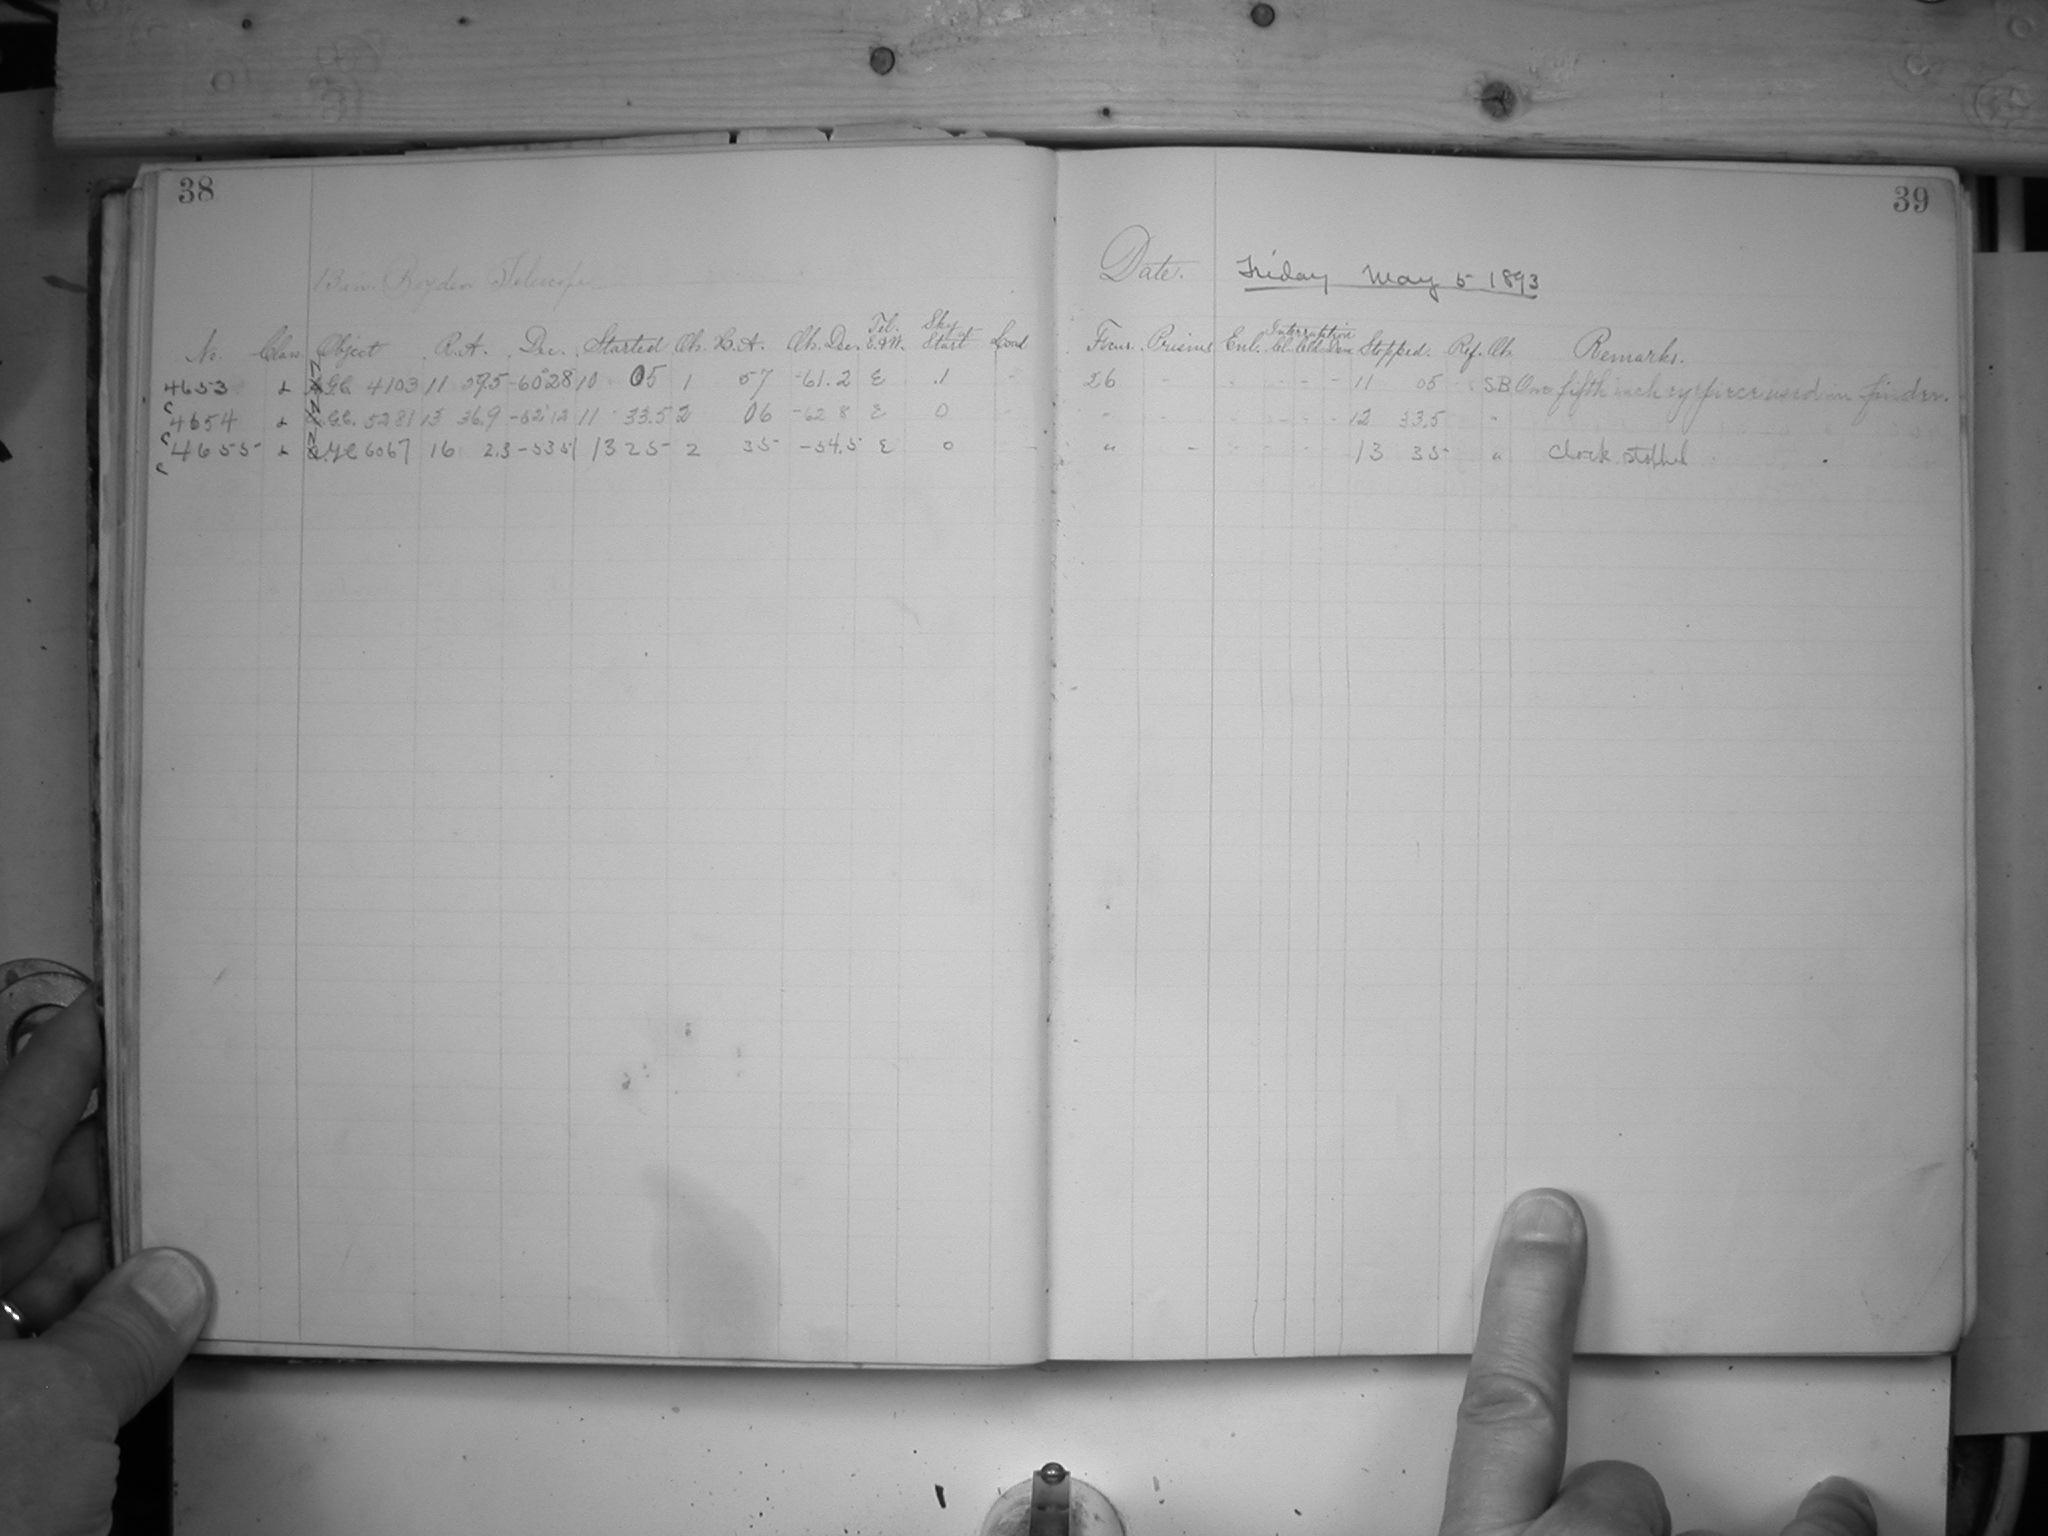 38
13 in. Boyden Telescope
No. Class Object R.A. Dec. Started Ob. H.A. Ob. Dec. Tel. E.&W. Sky at Start Cond
4653 L N.G.C. 4103 11 59.5 -60°28 10 05 1 57 -61.2 E .1 -
c
4654 L N.G.C. 5281 13 36.9 -62°12 11 33.5 2 06 -62 8 E 0
c
4655 L N.G.C 6067 16 2.3 -53 51 13 25 2 35 -54.5 E 0 -
c
39
Date. Friday May 5 1893
Focus. Prisms Exl. Interruption Stopped. Ref. Ob. Remarks.
26 - - - - - 11 05 SB One fifth inch eyepiece used in finder.
" - - - - 12 33.5 "
" - - - - - 13 35 " Clock stopped